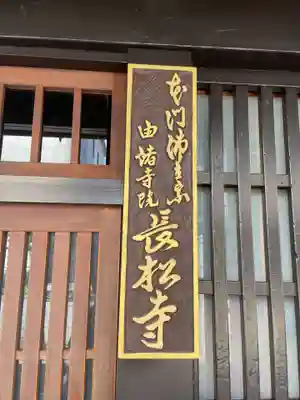 本門佛立宗
由緒寺院
長松寺